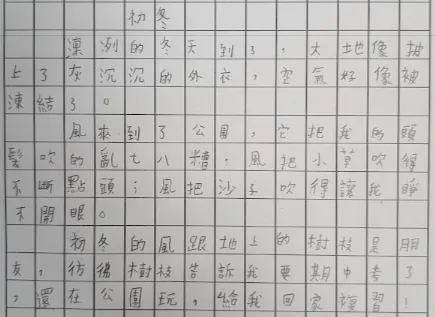 初冬
凜冽的冬天到了，大地像披
上了灰沉沉的外衣，空氣好像被
凍結了。
風來到了公園，它把我的頭
髮吹的亂七八糟；風把小草吹得
不斷點頭；風把沙子吹得讓我睜
不開眼。
初冬的風跟地上的樹枝是朋
友，彷彿樹枝告訴我要期中考了
，還在公園玩，給我回家複習！